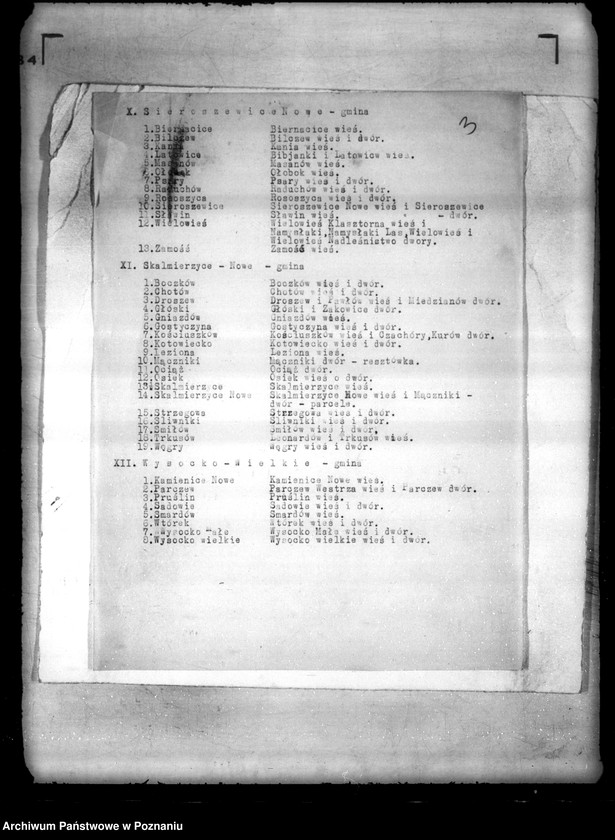 34
3
X. Sieroszewice Nowe - gmina
1.Biernacice Biernacice wieś.
2.Bilczew Bilczew wieś i dwór.
3.Kania Kania wieś.
4.Latowice Bibjanki i Latowice wieś.
5.Masanów Masanów wieś.
6.Ołobok Ołobok wieś.
7.Psary Psary wieś i dwór.
8.Raduchów Raduchów wieś i dwór.
9.Rososzyca Rososzyca wieś i dwór.
10.Sieroszewice Sieroszewice Nowe wieś i Sieroszewice
11.Sławin Sławin wieś. - dwór.
12.Wielowieś Wielowieś Klasztorna wieś i
Namysłaki,Namysłaki Las,Wielowieś i
Wielowieś Nadleśnictwo dwory.
13.Zamość Zamość wieś.
XI. Skalmierzyce - Nowe - gmina
1.Boczków Boczków wieś i dwór.
2.Chotów Chotów wieś i dwór.
3.Droszew Droszew i Pawłów wieś i Miedzianów dwór.
4.Głóski Głóski i Żakowice dwór.
5.Gniazdów Gniazdów wieś.
6.Gostyczyna Gostyczyna wieś i dwór.
7.Kościuszków Kościuszków wieś i Czachóry,Kurów dwór.
8.Kotowiecko Kotowiecko wieś i dwór.
9.Leziona Leziona wieś.
10.Mączniki Mączniki dwór - resztówka.
11.Ociąż Ociąż dwór.
12.Osiek Osiek wieś o dwór.
13.Skalmierzyce Skalmierzyce wieś.
14.Skalmierzyce Nowe Skalmierzyce Nowe wieś i Mączniki -
dwór - parcele.
15.Strzegowa Strzegowa wieś i dwór.
16.Śliwniki Śliwniki wieś i dwór.
17.Śmiłów Śmiłów wieś i dwór.
18.Trkusów Leonardów i Trkusów wieś.
19.Węgry Węgry wieś i dwór.
XII. Wysocko - Wielkie - gmina
1.Kamienice Nowe Kamienice Nowe wieś.
2.Parczew Parczew Westrza wieś i Parczew dwór.
3.Pruślin Pruślin wieś.
4.Sadowie Sadowie wieś i dwór.
5.Smardów Smardów wieś.
6.Wtórek Wtórek wieś i dwór.
7.Wysocko Małe Wysocko Małe wieś i dwór.
8.Wysocko wielkie Wysocko wielkie wieś i dwór.
Archiwum Państwowe w Poznaniu